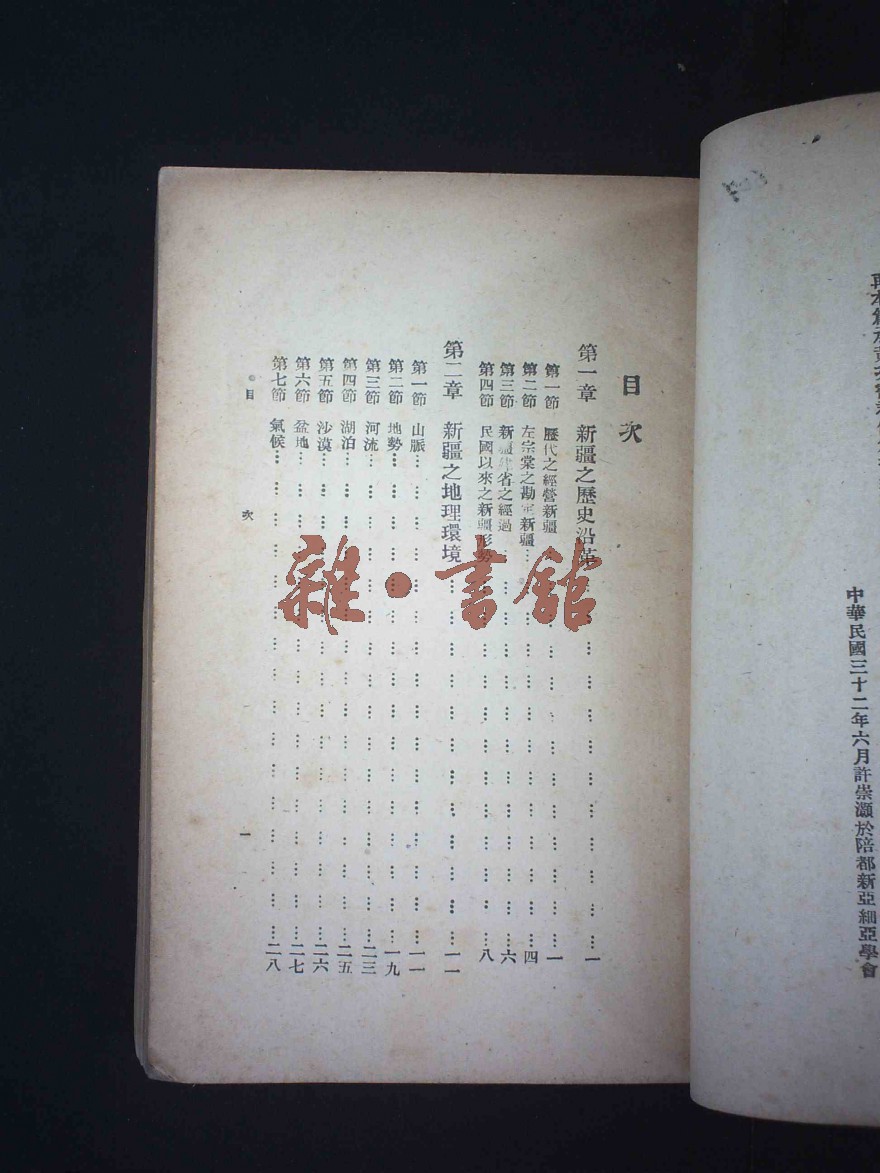 中華民國三十二年六月許崇灝於陪都新亞細亞學會
目次
第一章 新疆之歷史沿革 一
第一節 歷代之經營新疆 一
第二節 左宗棠之勘定新疆 四
第三節 新疆建省之經過 六
第四節 民國以來之新疆形勢 八
第二章 新疆之地理環境 一一
第一節 山脈 一一
第二節 地勢 一九
第三節 河流 二三
第四節 湖泊 二五
第五節 沙漠 二六
第六節 盆地 二七
第七節 氣候 二八
目次 一
雜·書館